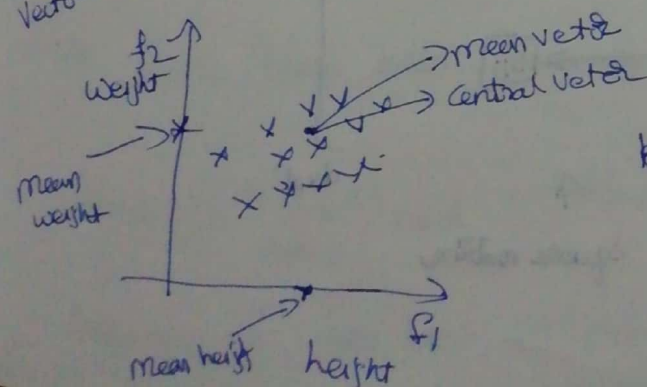 Vecto
f2
weight
mean vetor
Central vetor
mean
weight
f1
mean height
height